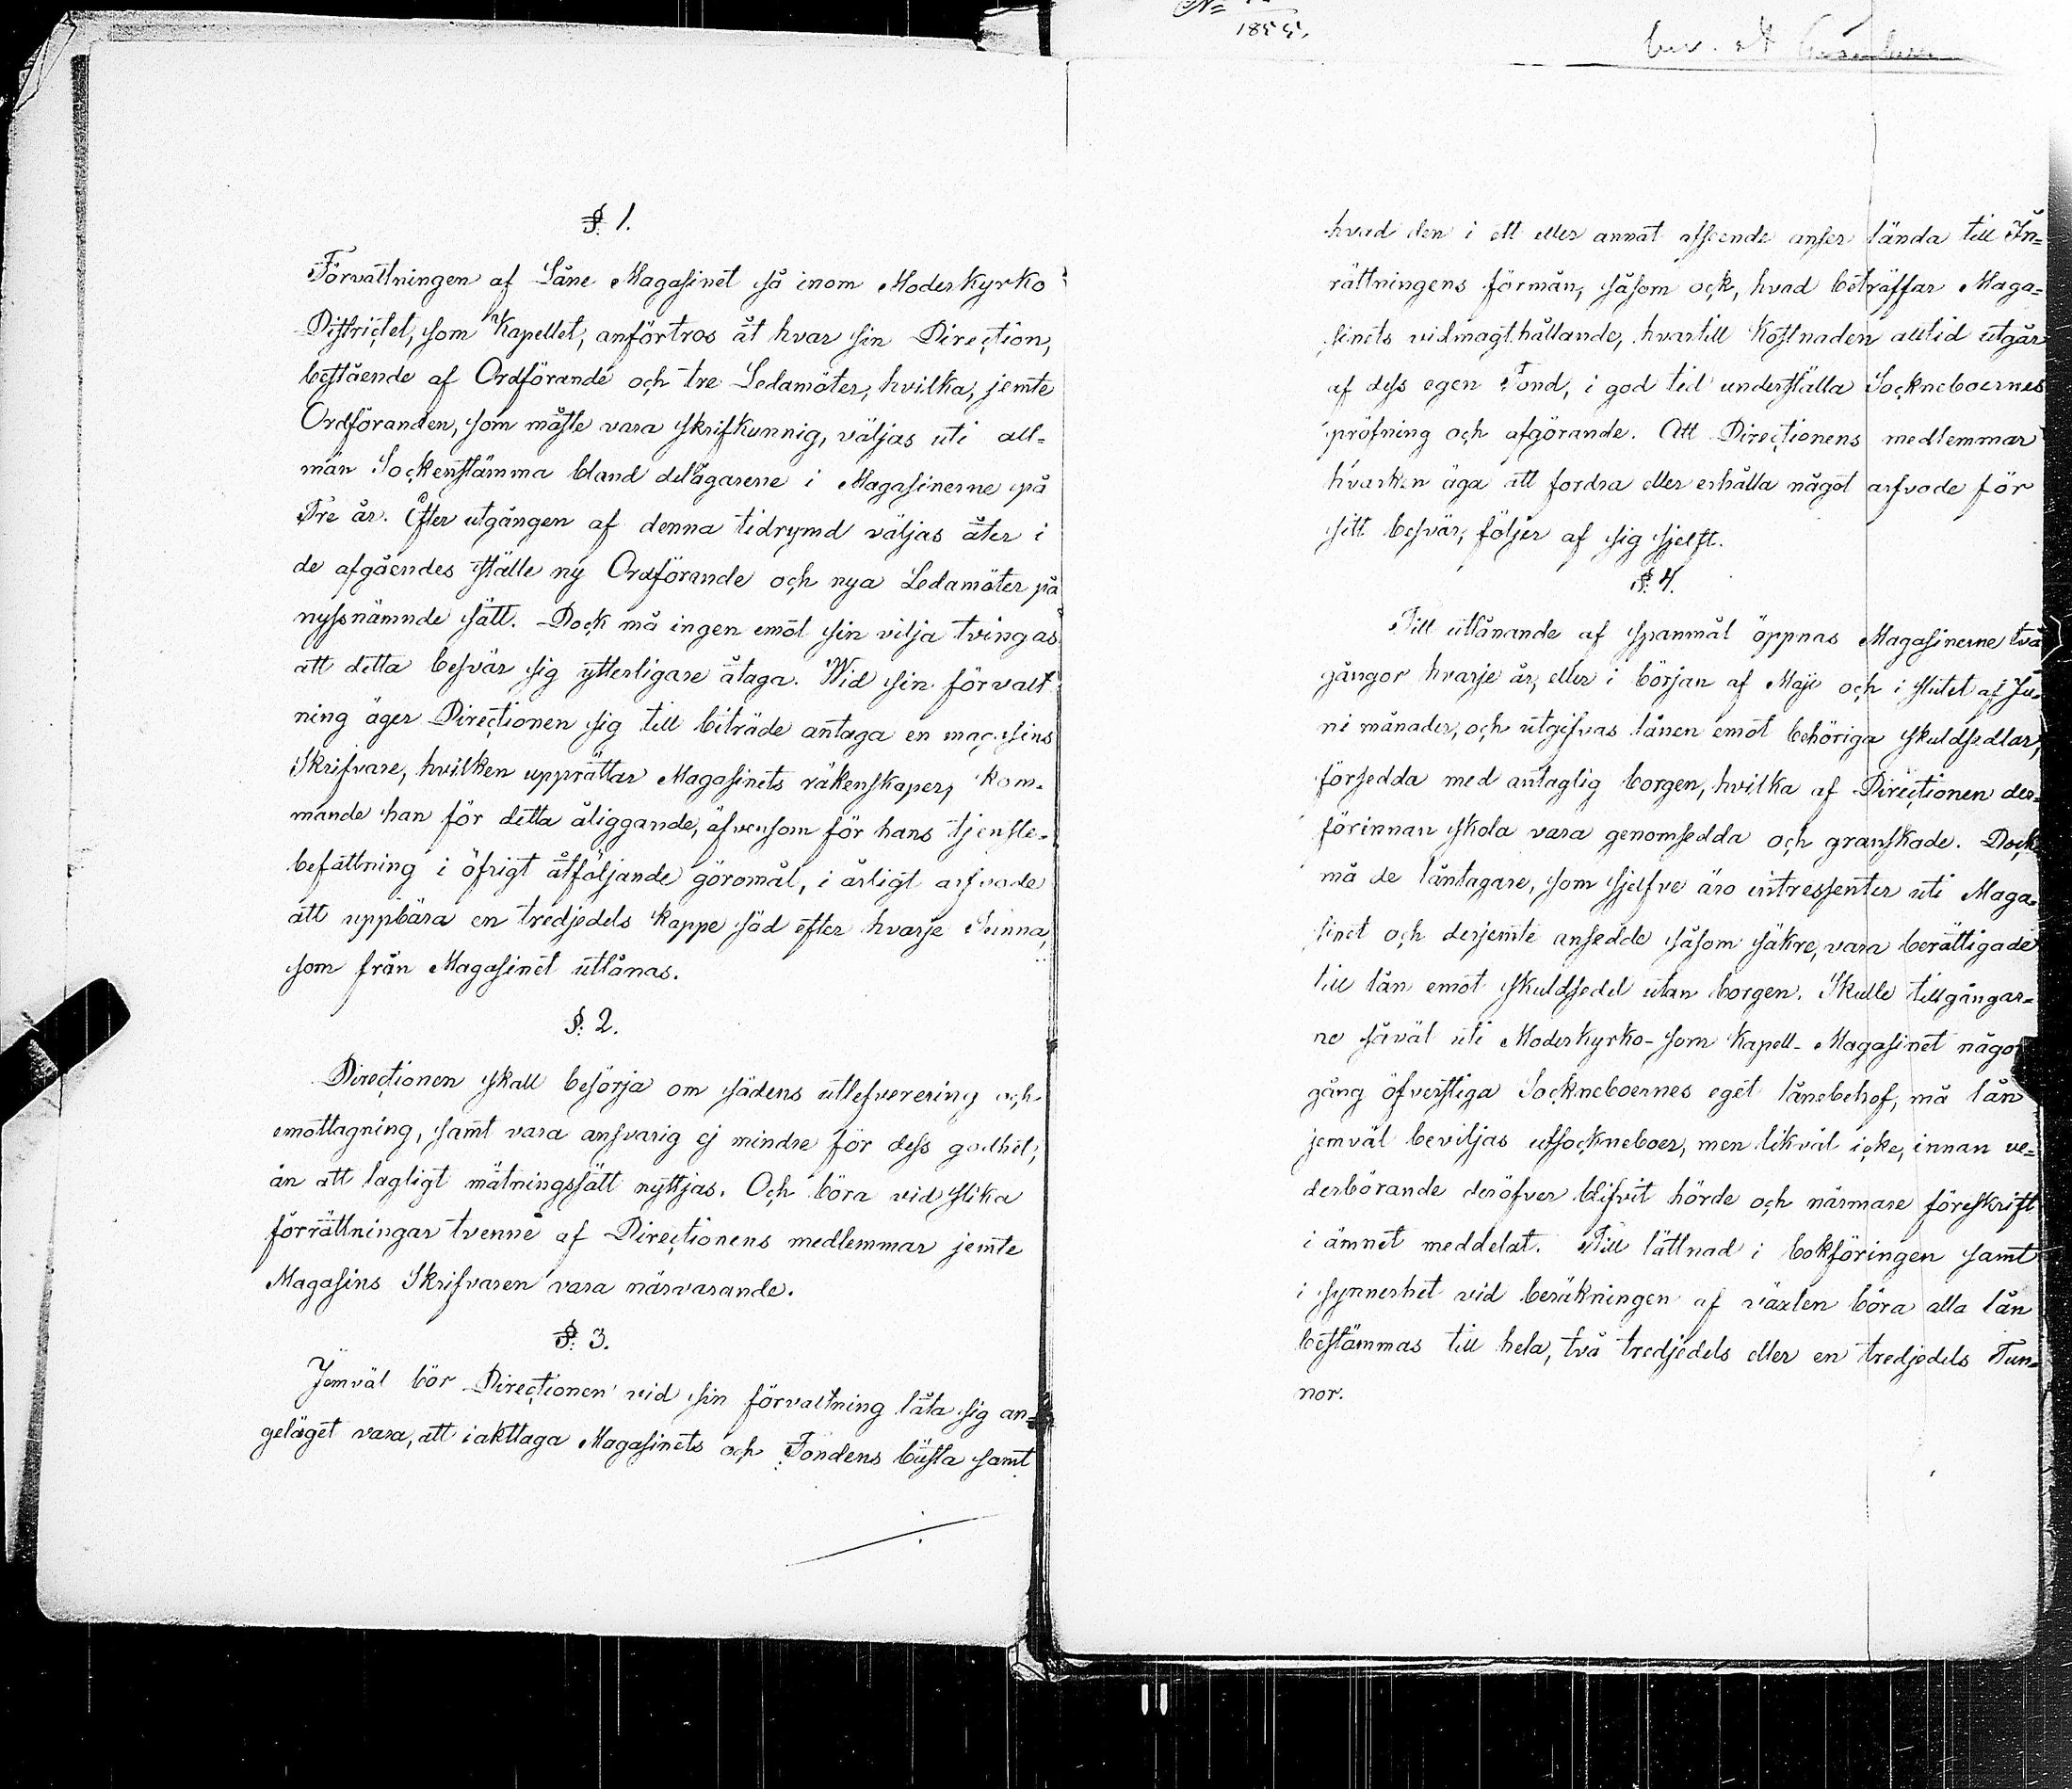 §. 1.
Förvaltningen af Låne Magasinet så inom Moderkyrko
Districtet, som Kapellet, anförtros åt hvar sin Direction,
bestående af Ordförande och tre Ledamöter, hvilka, jemte
Ordföranden, som måste vara skrifkunnig, väljas uti all-
män Sockenstämma bland delägarene i Magasinerne på
Tre år. Efter utgången af denna tidrymd väljas åter i
de afgåendes ställe ny Ordförande och nya Ledamöter på
nyssnämnde sätt. Dock må ingen emot sin vilja tvingas
att detta besvär sig ytterligare åtaga. Wid sin förvalt
ning äger Directionen sig till biträde antaga en magasins
Skrifvare, hvilken upprättar Magasinets räkenskaper, kom-
mande han för detta åliggande, äfvensom för hans tjenste-
befattning i öfrigt åtföljande göromål, i årligt arfvode
att uppbära en tredjedels kappe säd efter hvarje Tunna,
som från Magasinet utlånas.
§. 2.
Directionen skall besörja om sädens utlefverering och
emottagning, samt vara ansvarig ej mindre för dess godhet,
än att lagligt mätningssätt nyttjas. Och böra vid slika
förrättningar tvenne af Directionens medlemmar jemte
Magasins Skrifvaren vara närvarande.
§. 3.
Jemväl bör Directionen vid sin förvaltning låta sig an-
geläget vara, att iakttaga Magasinets och Fondens bästa samt
No
1855.
hvad den i ett eller annat afseende anser lända till In-
rättningens förmån, såsom ock, hvad beträffar Maga-
sinets vidmagthållande, hvartill Kostnaden alltid utgår
af dess egen Fond, i god tid underställa Sockneboernes
pröfning och afgörande. Att Directionens medlemmar
hvarken äga att fordra eller erhålla något arfvode för
sitt besvär, följer af sig sjelft.
§. 4.
Till utlånande af spanmål öppnas Magasinerne två
gångor hvarje år, eller i början af Maji och i slutet af Ju-
ni månader, och utgifvas lånen emot behöriga skuldsedlar,
försedda med antaglig borgen, hvilka af Directionen der-
förinnan skola vara genomsedda och granskade. Dock
må de låntagare, som sjelfve äro intressenter uti Maga-
sinet och derjemte ansedde såsom säkre, vara berättigade
till lån emot skuldsedel utan borgen. Skulle tillgångar-
ne såväl uti Moderkyrko- som Kapell- Magasinet någon
gång öfverstiga Sockneboernes eget lånebehof, må lån
jemväl beviljas utsockneboer, men likväl icke, innan ve-
derbörande deröfver blifvit hörde och närmare föreskrift
i ämnet meddelat. Till lättnad i bokföringen samt
i synnerhet vid beräkningen af växten böra alla lån
bestämmas till hela, två tredjedels eller en tredjedels Tun-
nor.